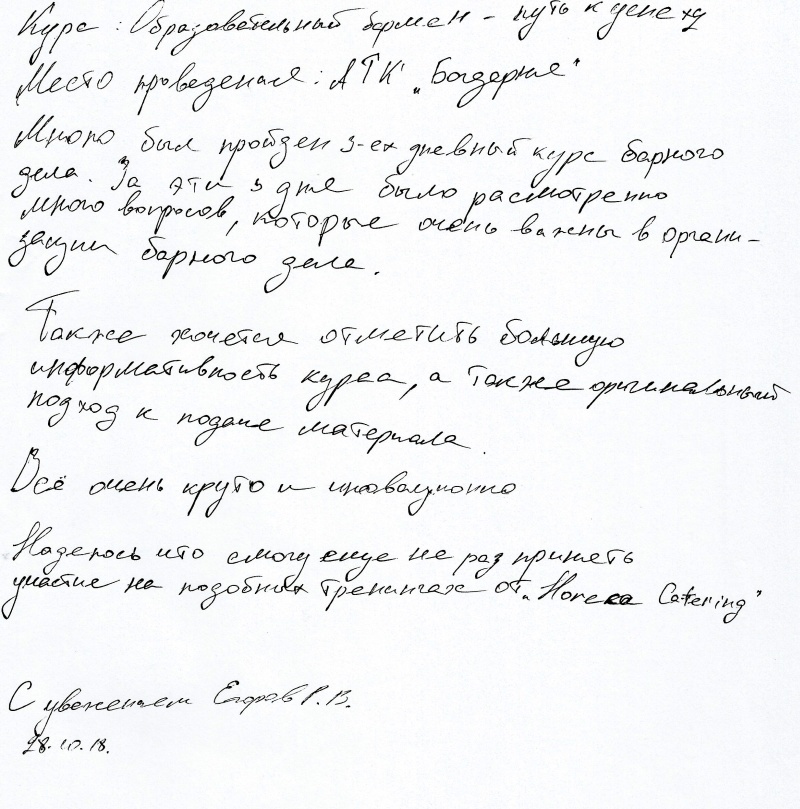 Курс: Образовательный бармен - путь к успеху
Место проведения: АТК "Бандерне"
Мною был пройден 3-ех дневный курс барного
дела. За эти 3 дне было расмотренно
много вопросов, которые очень важны в органи-
зации барного дела.
Также хочется отметить большую
информативность курса, а также оригинальный
подход к подаче материала.
Всё очень круто и иновационно
Надеюсь что смогу еще не раз принеть
участие на подобных тренингах от "Horeca Catering"
С уважением Егоров Р.В.
28.10.18.